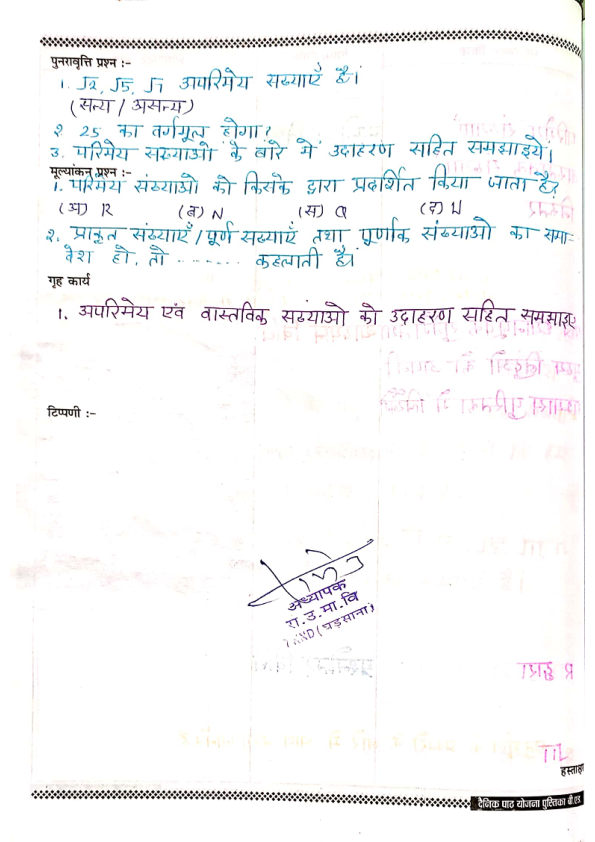 पुनरावृत्ति प्रश्न :-
1. √2, √5, √7 अपरिमेय सख्याएँ है।
(सत्य / असत्य)
2. 25 का वर्गमूल होगा?
3. परिमेय सख्याओ के बारे में उदाहरण सहित समझाइये।
मूल्यांकन प्रश्न :-
1. परिमेय संख्याओ को किसके द्वारा प्रदर्शित किया जाता है?
(अ) R (ब) N (स) Q (द) W
2. प्राकृत संख्याएँ / पूर्ण सख्याएँ तथा पूर्णाक संख्याओ का समा-
वेश हो, तो ........ कहलाती है।
गृह कार्य
1. अपरिमेय एवं वास्तविक सख्याओ को उदाहरण सहित समझाइए
टिप्पणी :-
अध्यापक
रा.उ.मा.वि
(घड़साना)
हस्ताक्ष
दैनिक पाठ योजना पुस्तिका बी.एड.